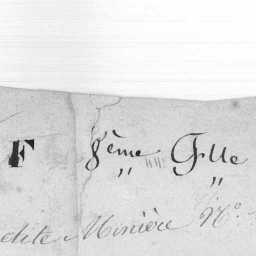 F 8ème Glle
„ „
dite Minière No